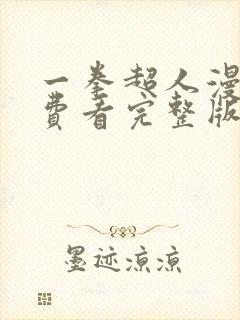 一拳超人漫
费看完整版
墨迹凉凉